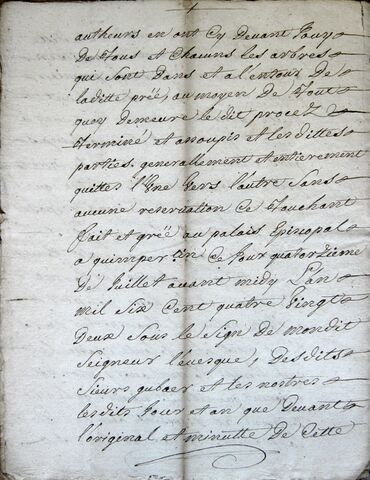 autheurs en ont cy devant Jouy
de Tous et Chacuns les arbres
qui sont dans et a l'entour de
laditte prée, au moyen de Tout
quoy demeure le dit procez
Terminé et assoupis et lesdittes
parties generallement et entierement
quittes l'Une Vers l'autre Sans
aucune reservation Ce Touchant
fait et gréé au palais Episcopal
a quimpertin Ce Jour quatorzieme
de Juillet avant midy L'an
mil Six Cent quatre Vingt
Deux Sous le Sign de mondit
Seigneur l'evesque, Desdits
Sieurs gubaer et les nostres
lesdits Jour et an que Devant
l'original et minutte de Cette